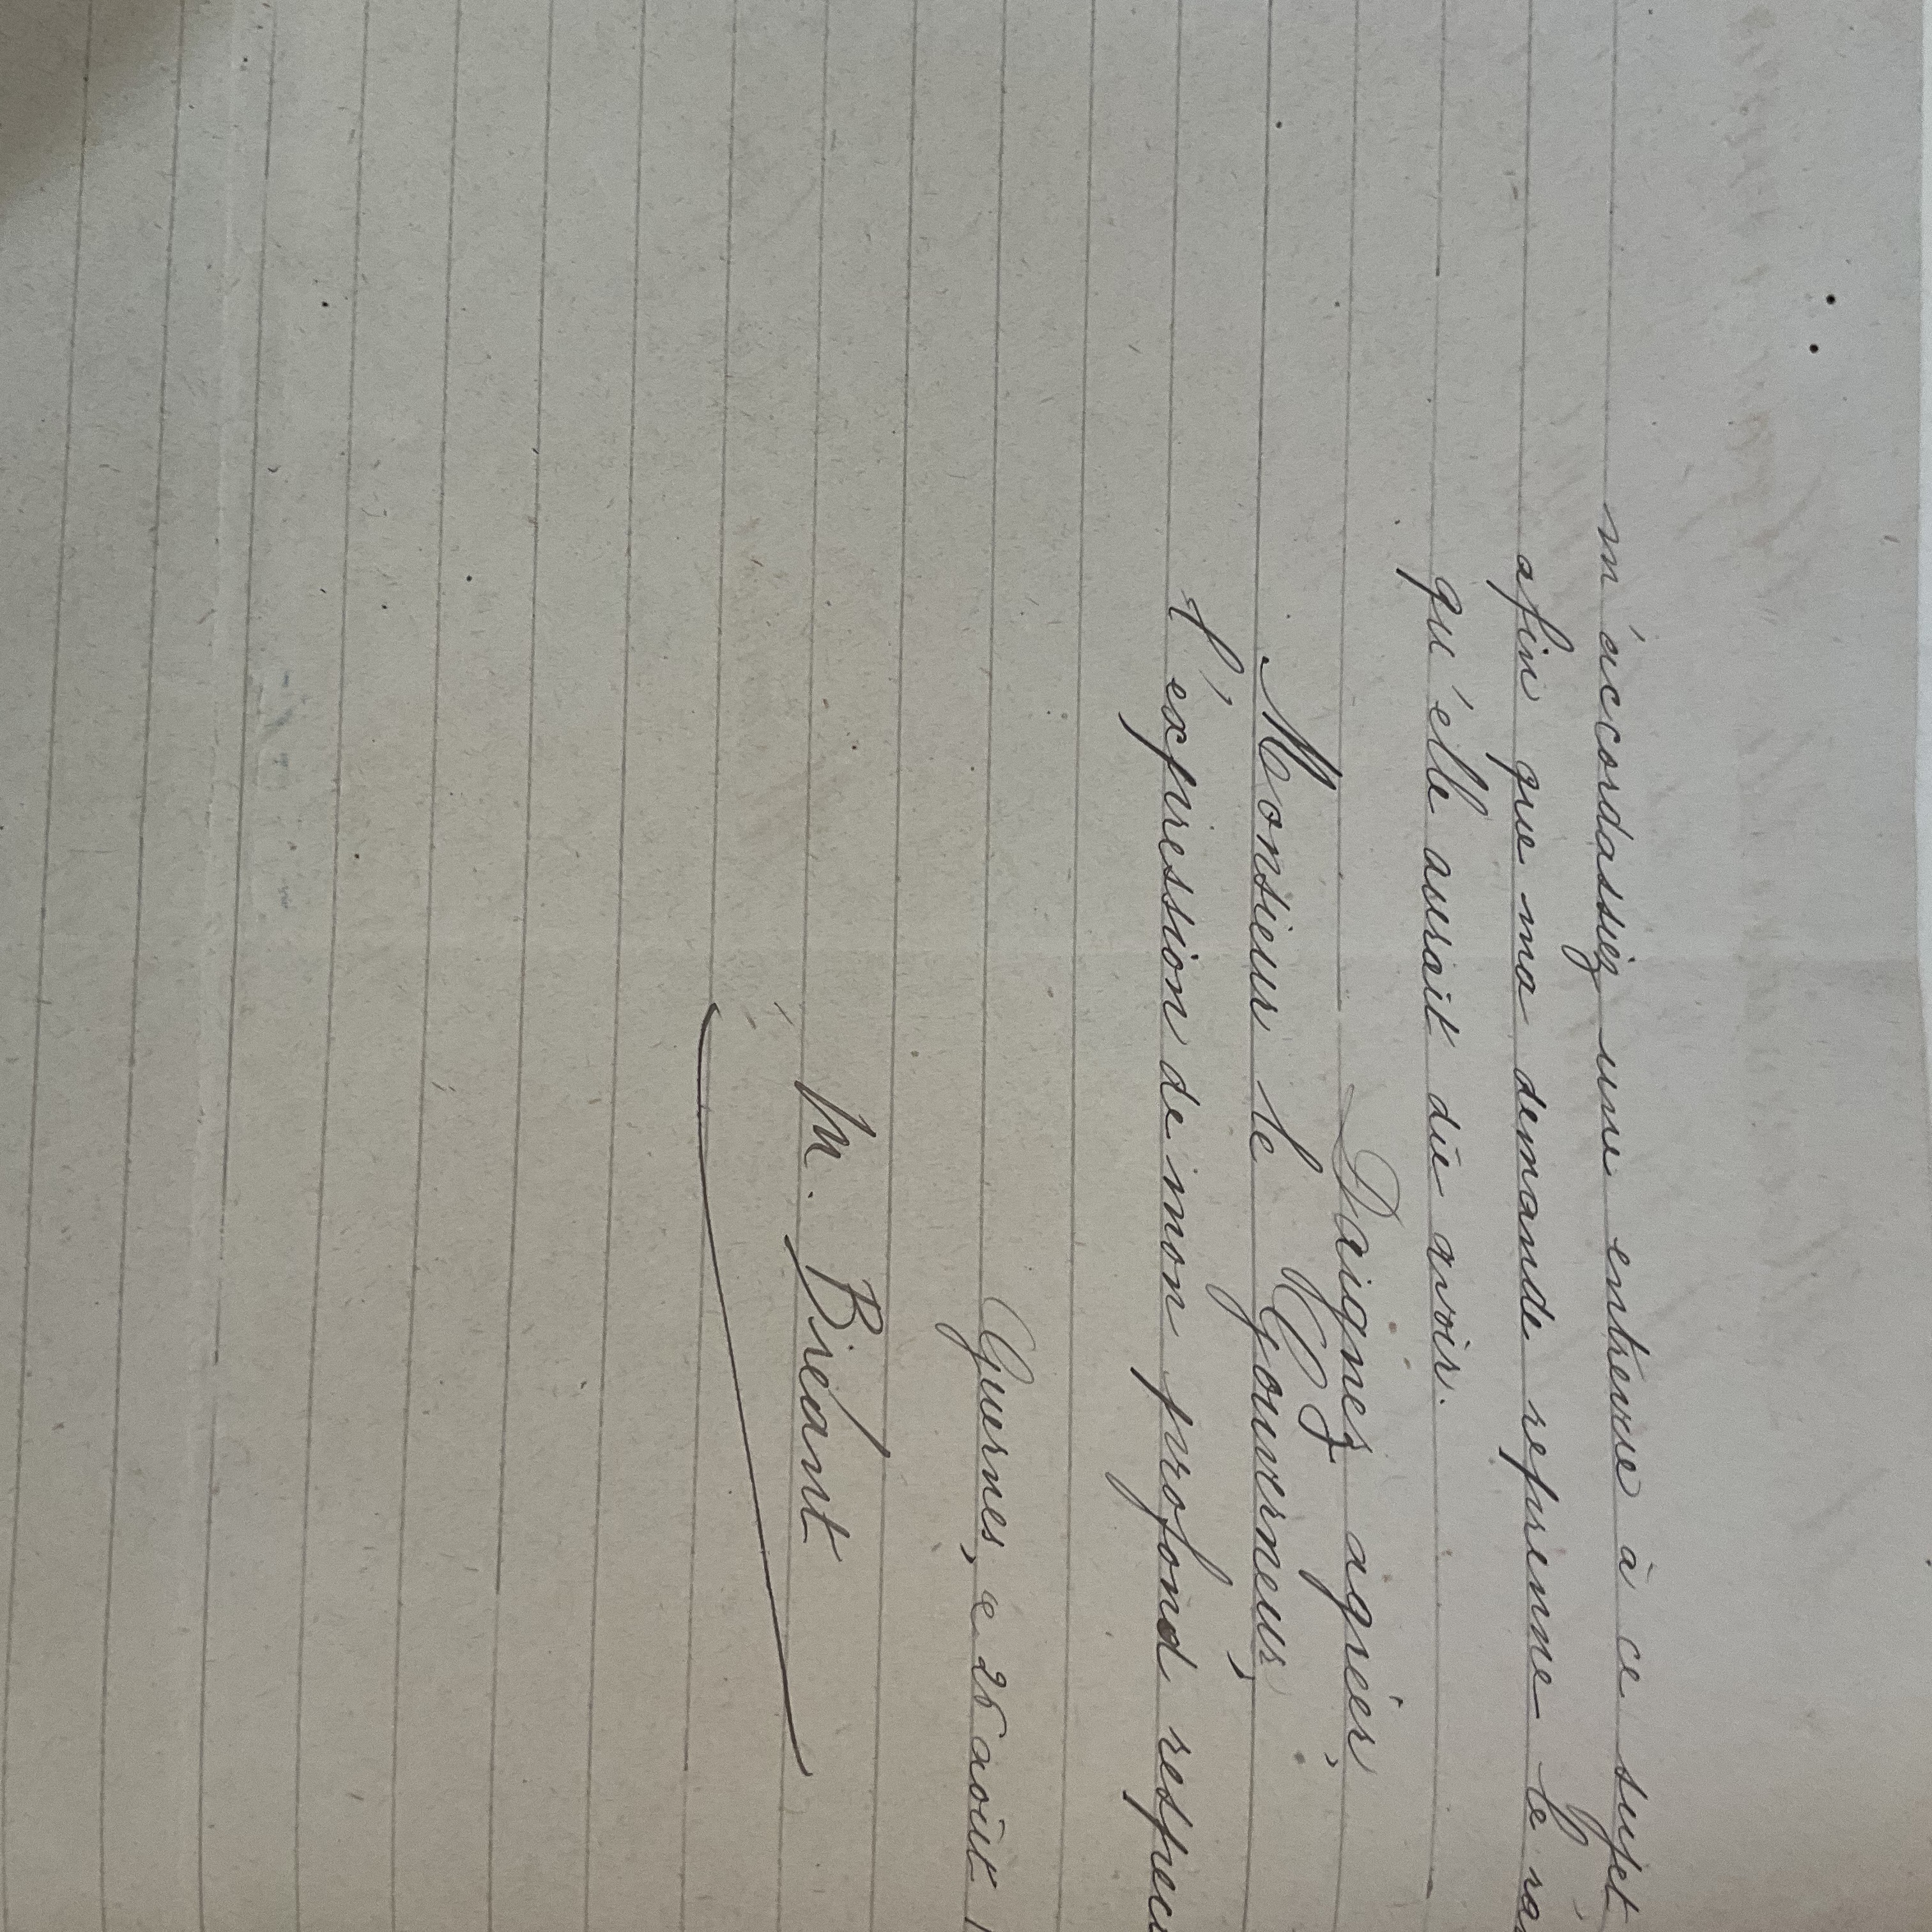 m'accordassiez une entrevue à ce sujet
afin que ma demande reprenne le ra
qu'elle aurait dû avoir.
Daignez agréer,
Monsieur le Gouverneur,
l'expression de mon profond respec
Guernes, e 26 août 1
M. Biéant